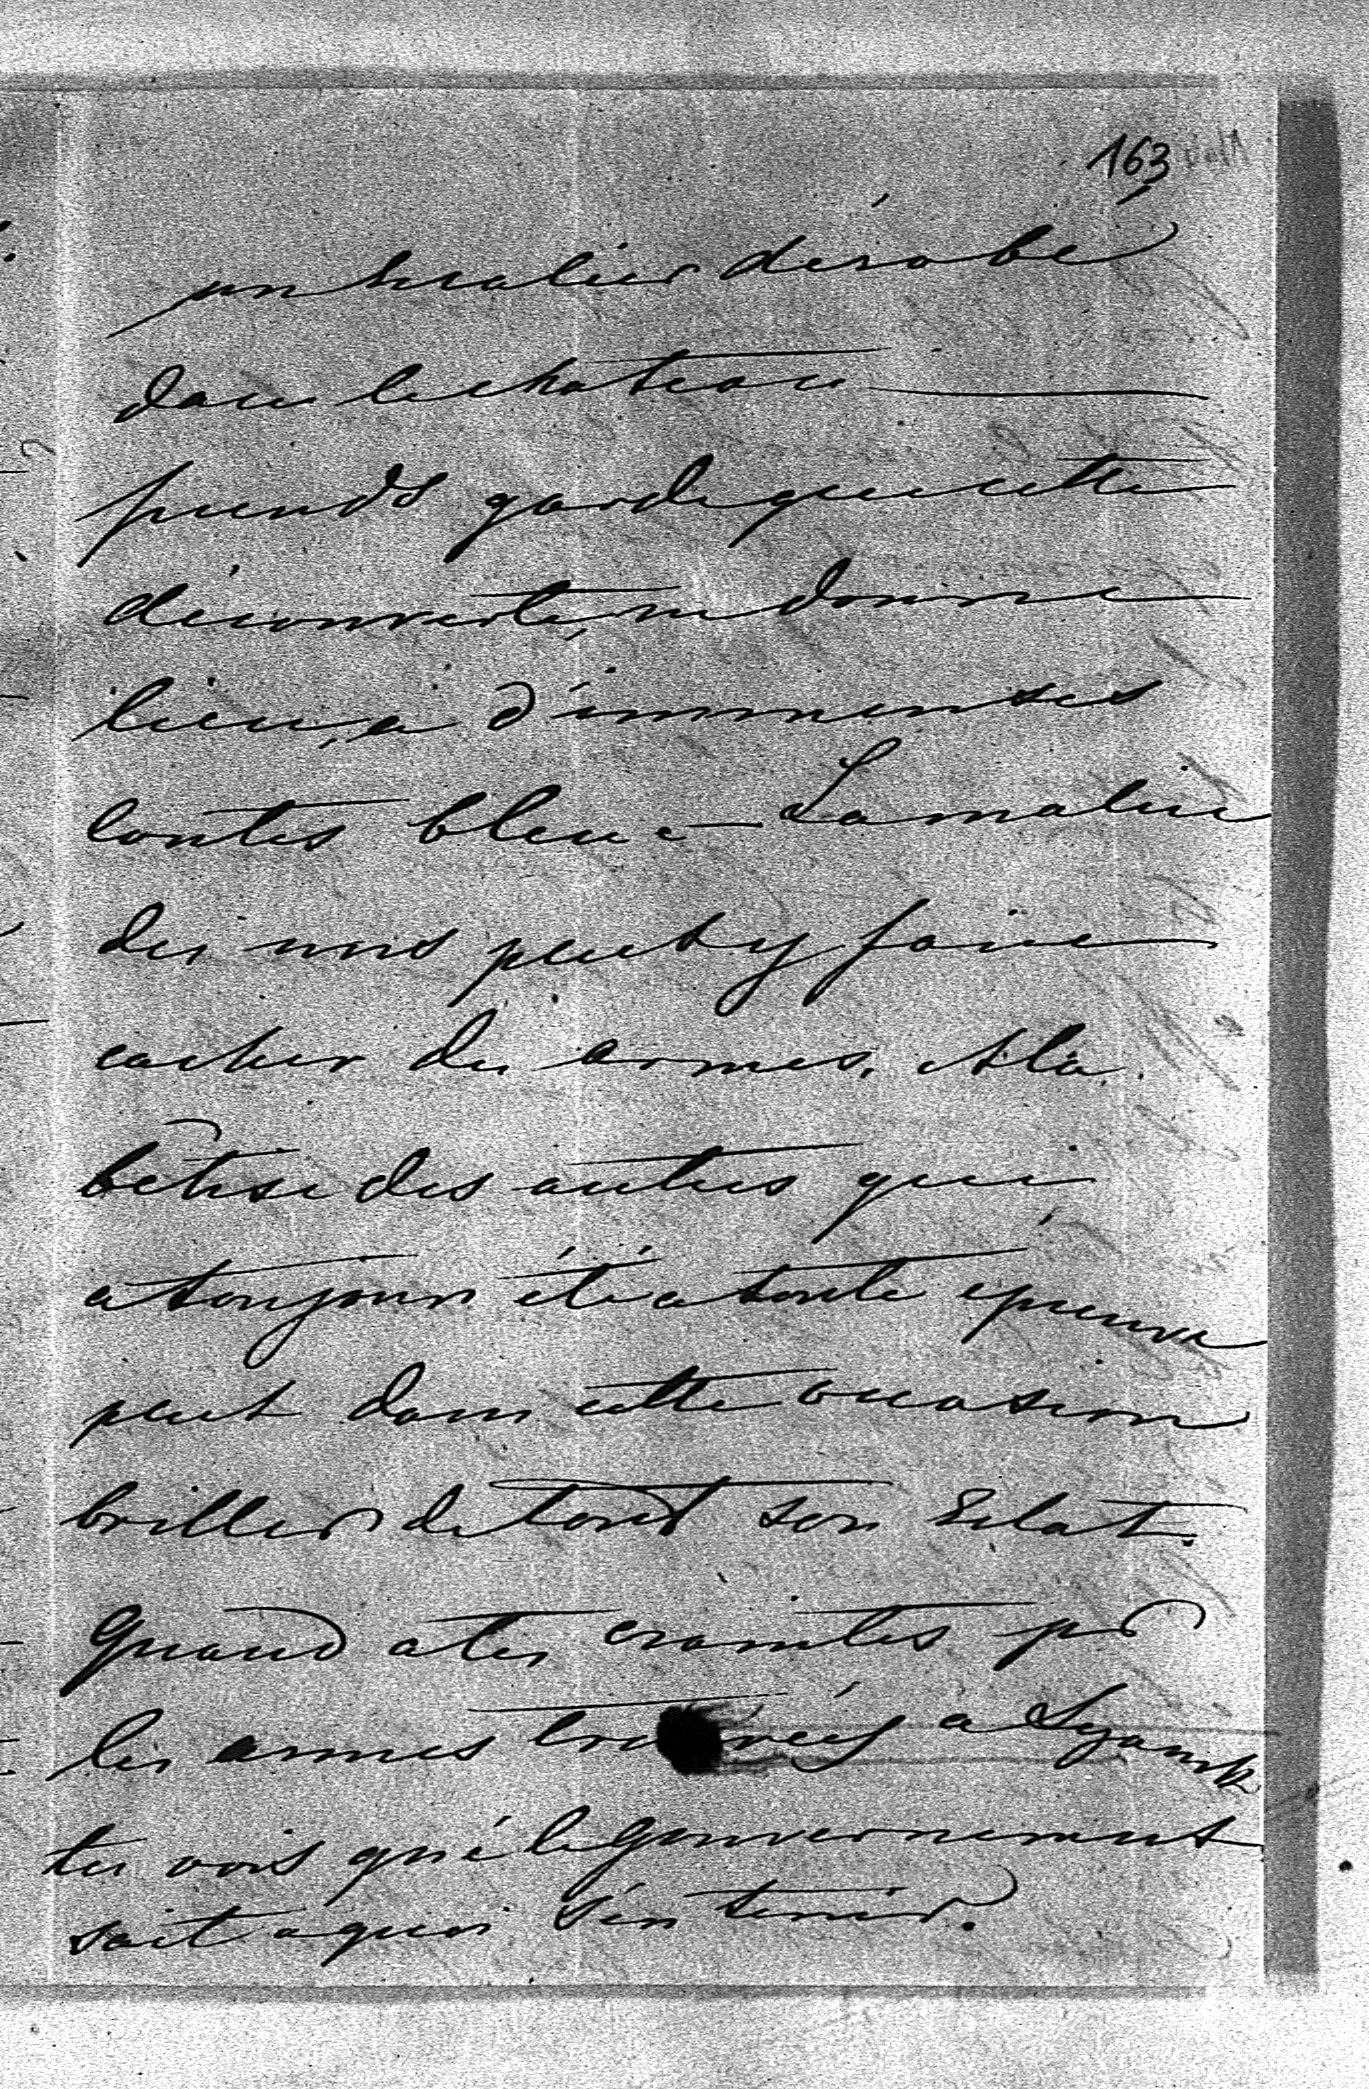 163
un escalier dérobé
dans le chateau —
prends garde que cette
découverte, ne donne
lieu, a d'immenses
contes bleue — La malice
des uns peut y faire
cacher des armes. et la
bêtise des autres qui
a toujours été a toute epreuve
peut dans cette occasion
briller de tout son Eclat.
Quand a tes craintes pr
les armes trouvées a
tu vois que le gouvernement
sait a quoi s'en tenir.